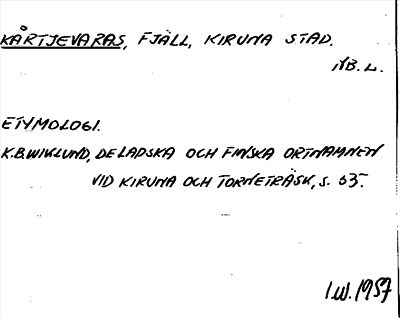 KÅRTJEVARAS, FJÄLL, KIRUNA STAD.
NB.L.
ETYMOLOGI.
K.B.WIKLUND, DE LAPSKA OCH FINSKA ORTNAMNEN
VID KIRUNA OCH TORNETRÄSK, S. 53.
I.W. 1957